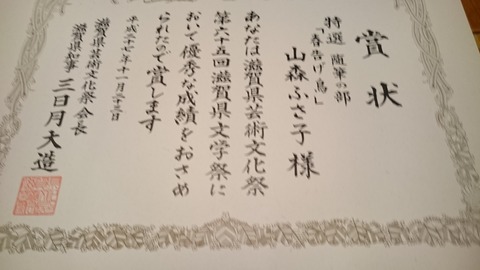 賞状
特選 随筆の部
「春告げ鳥」
山森ふさ子 様
あなたは滋賀県芸術文化祭
第六十五回滋賀県文学祭に
おいて優秀な成績をおさめ
られたので賞します
平成二十七年十一月二十三日
滋賀県芸術文化祭会長
滋賀県知事 三日月大造